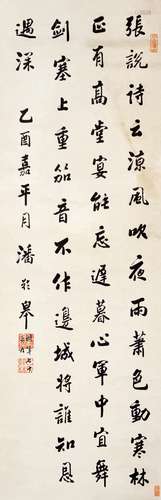 張說詩云涼風吹夜雨蕭色動寒林
正有高堂宴能忘遲暮心軍中宜舞
劍塞上重笳音不作邊城將誰知恩
遇深 乙酉嘉平月 潘齡皋